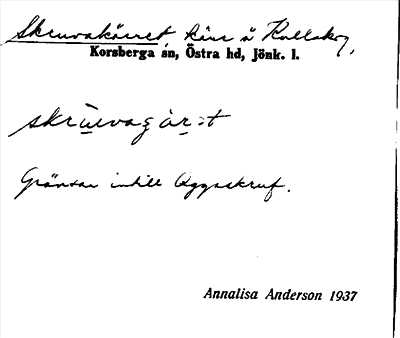 Skruvakärret kärr å Kullskog,
Korsberga sn, Östra hd, Jönk. l.
skruvagär:t
Gränsar intill Äggaskruf.
Annalisa Anderson 1937